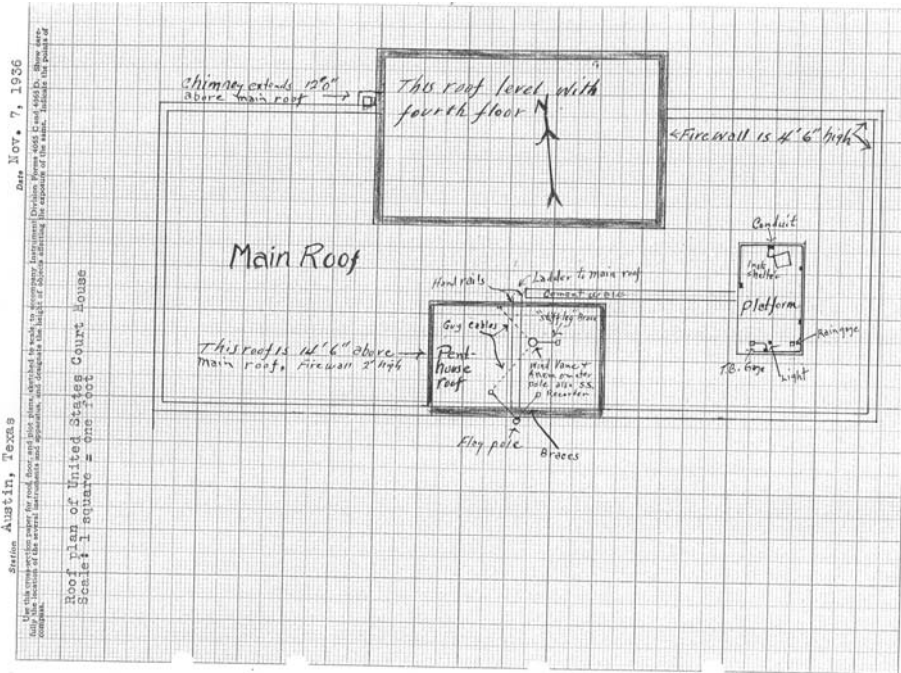 Station Austin, Texas
Date Nov. 7, 1936
Use this cross-section paper for roof, floor, and plot plans, sketched to scale, to accompany Instrument Division Forms 4055 C and 4055 D. Show care-
fully the location of the several instruments and apparatus, and designate the height of objects affecting the exposure of the same. Indicate the points of
compass.
Roof plan of United States Court House
Scale: 1 square = one foot
Chimney extends 12'0"
above main roof
This roof level with
fourth floor
N
Firewall is 4' 6" high
Main Roof
Conduit
Inst.
shelter
Platform
Hand rails
Ladder to main roof
Cement walk
Guy cables
"Stiff leg Brace"
This roof is 14' 6" above
Main roof, Firewall 2' high
Pent-
house
roof
Wind Vane +
Anemometer
pole also S.S.
Recorder
T.B. Gage
Light
Raingage
Flag pole
Braces